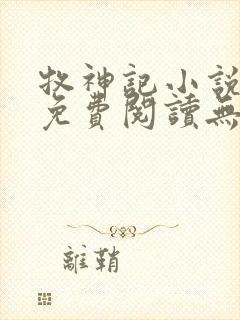 牧神記小說
免費閱讀無
離鞘